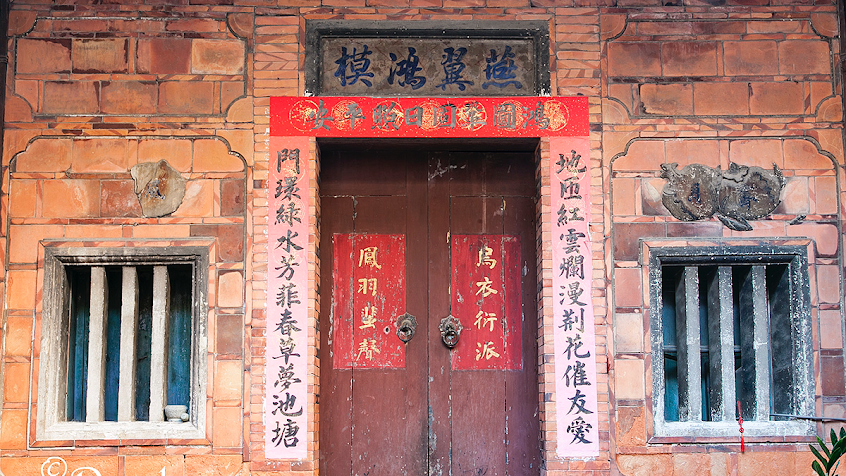 燕翼鴻模
鴻圖家國日照平安
地匝紅雲爛漫荆花催友愛
門環綠水芳菲春草夢池塘
烏衣衍派
鳳羽蜚聲
©